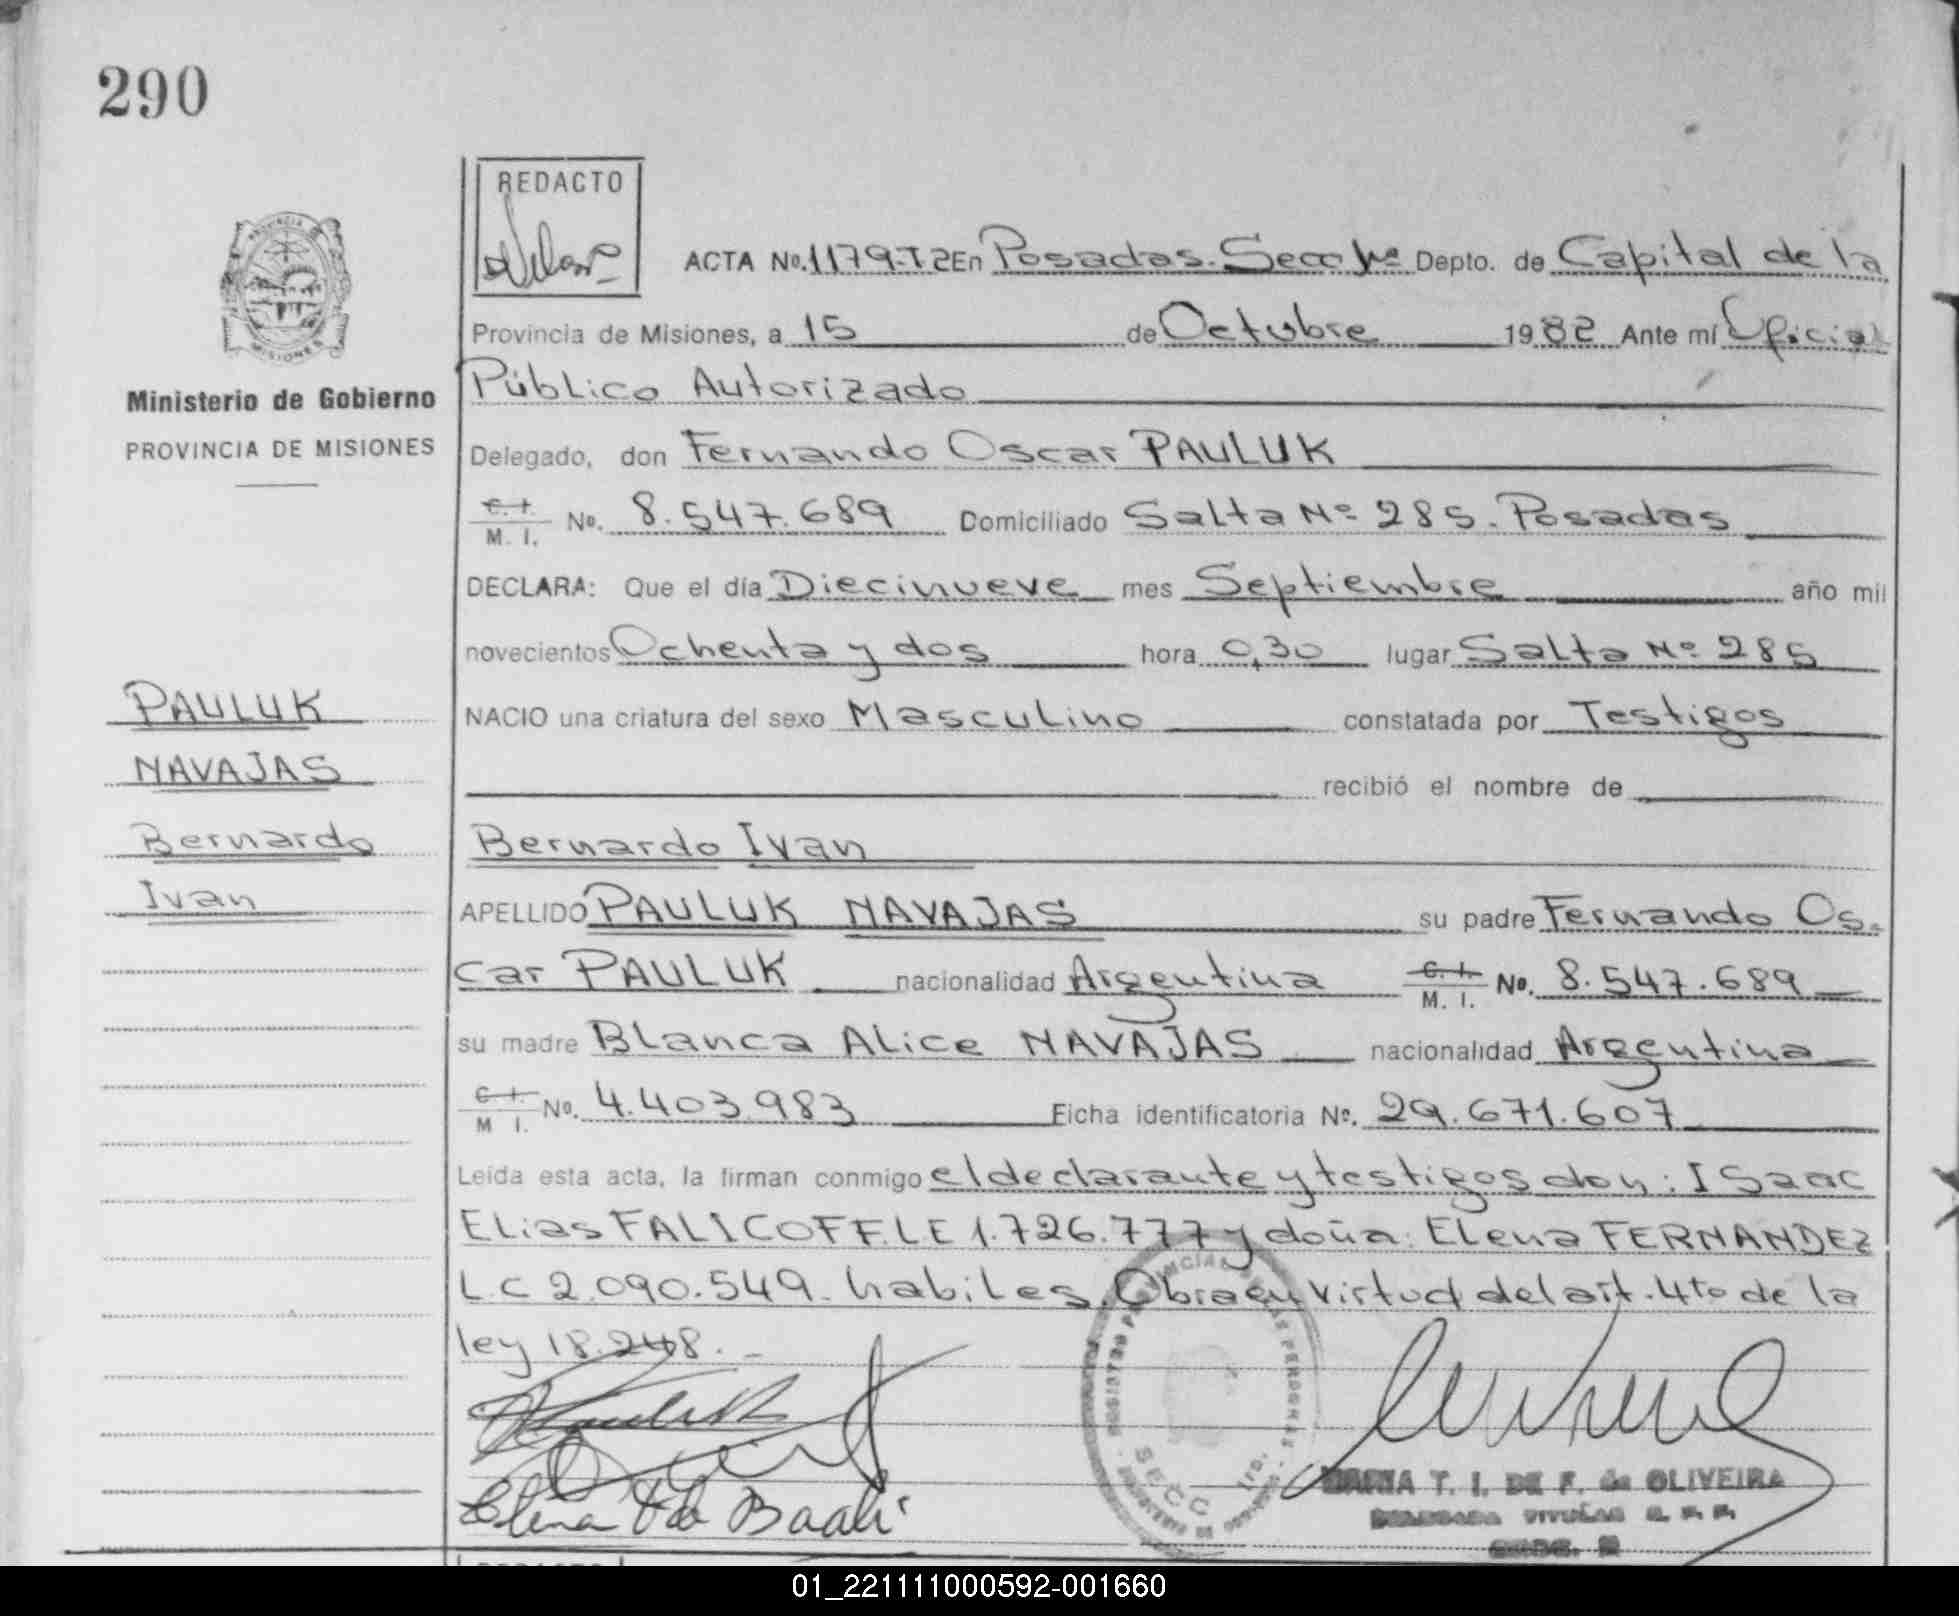 290
REDACTO
ACTA No. 1179-T2 En Posadas. Secc 1ra Depto. de Capital de la
Provincia de Misiones, a 15 de Octubre 1982 Ante mí Oficial
Público Autorizado
Delegado, don Fernando Oscar PAULUK
C. I. No. 8.547.689 Domiciliado Salta Nº 285. Posadas
M. I.
DECLARA: Que el día Diecinueve mes Septiembre año mil
novecientos Ochenta y dos hora 0,30 lugar Salta Nº 285
NACIO una criatura del sexo Masculino constatada por Testigos
recibió el nombre de
Bernardo Ivan
APELLIDO PAULUK NAVAJAS su padre Fernando Os-
car PAULUK nacionalidad Argentina C. I. No. 8.547.689
M. I.
su madre Blanca Alice NAVAJAS nacionalidad Argentina
C. I. No. 4.403.983 Ficha identificatoria Nº. 29.671.607
M. I.
Leída esta acta, la firman conmigo el declarante y testigos don: ISaac
Elias FALICOFF. LE 1.726.777 y doña: Elena FERNANDEZ
L.C 2.090.549. habiles. Obra en virtud del art. 4to de la
ley 18.248.-
PROVINCIA
MISIONES
Ministerio de Gobierno
PROVINCIA DE MISIONES
PAULUK
NAVAJAS
Bernardo
Ivan
Elena F de
SECC 1ra.
MARIA T. I. DE F. de OLIVEIRA
DELEGADA TITULAR
01_221111000592-001660